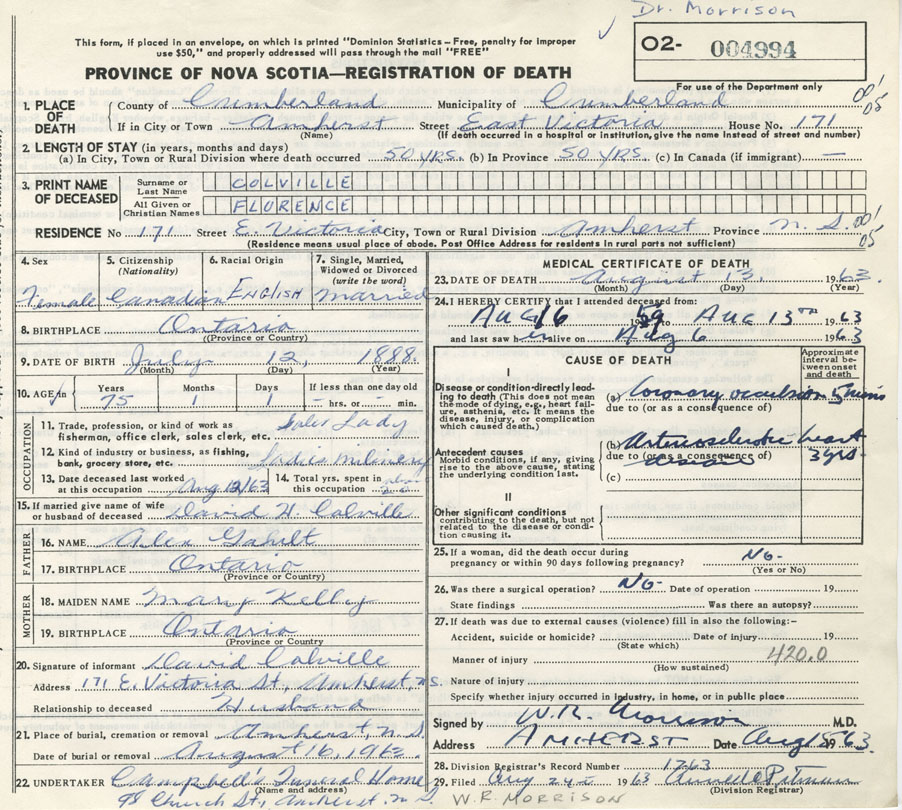 Dr. Morrison
This form, if placed in an envelope, on which is printed "Dominion Statistics – Free, penalty for improper
use $50," and properly addressed will pass through the mail "FREE"
O2- 004994
PROVINCE OF NOVA SCOTIA—REGISTRATION OF DEATH
For use of the Department only
1. PLACE OF DEATH
County of Cumberland Municipality of Cumberland
If in City or Town Amherst Street East Victoria House No. 171
(Name) (If death occurred in a hospital or institution, give the name instead of street and number)
2. LENGTH OF STAY (in years, months and days)
(a) In City, Town or Rural Division where death occurred 50 yrs. (b) In Province 50 yrs. (c) In Canada (if immigrant) —
3. PRINT NAME OF DECEASED
Surname or Last Name COLVILLE
All Given or Christian Names FLORENCE
RESIDENCE No 171 Street E. Victoria City, Town or Rural Division Amherst Province N.S.
(Residence means usual place of abode. Post Office Address for residents in rural parts not sufficient)
4. Sex Female
5. Citizenship (Nationality) Canadian
6. Racial Origin ENGLISH
7. Single, Married, Widowed or Divorced (write the word) Married
8. BIRTHPLACE Ontario
(Province or Country)
9. DATE OF BIRTH July 12, 1888
(Month) (Day) (Year)
10. AGE Years 75 Months 1 Days 1 If less than one day old - hrs. or - min.
OCCUPATION
11. Trade, profession, or kind of work as fisherman, office clerk, sales clerk, etc. Sales Lady
12. Kind of industry or business, as fishing, bank, grocery store, etc. Ladies
13. Date deceased last worked at this occupation Aug 12/63
14. Total yrs. spent in this occupation
15. If married give name of wife or husband of deceased David H. Colville
FATHER
16. NAME Alex
17. BIRTHPLACE Ontario
(Province or Country)
MOTHER
18. MAIDEN NAME Mary Kelly
19. BIRTHPLACE Ontario
(Province or Country)
20. Signature of informant David Colville
Address 171 E. Victoria St., Amherst, N.S.
Relationship to deceased Husband
21. Place of burial, cremation or removal Amherst, N.S.
Date of burial or removal August 16, 1963
22. UNDERTAKER Campbell's Funeral Home
(Name and address)
98 Church St., Amherst N.S.
MEDICAL CERTIFICATE OF DEATH
23. DATE OF DEATH August 13 1963
(Month) (Day) (Year)
24. I HEREBY CERTIFY that I attended deceased from:
AUG 16 1959 to AUG 13th 1963
and last saw her alive on Aug 6 1963
CAUSE OF DEATH
Approximate interval between onset and death
I
Disease or condition directly leading to death (This does not mean the mode of dying, e.g., heart failure, asthenia, etc. It means the disease, injury, or complication which caused death.)
(a) Coronary occlusion 5 mins
due to (or as a consequence of)
Antecedent causes
Morbid conditions, if any, giving rise to the above cause, stating the underlying condition last.
(b) Arteriosclerotic heart disease 3 yrs-
due to (or as a consequence of)
(c)
II
Other significant conditions
contributing to the death, but not related to the disease or condition causing it.
25. If a woman, did the death occur during pregnancy or within 90 days following pregnancy? No-
(Yes or No)
26. Was there a surgical operation? No- Date of operation 19
State findings Was there an autopsy?
27. If death was due to external causes (violence) fill in also the following:–
Accident, suicide or homicide? Date of injury 19
(State which)
Manner of injury 420.0
(How sustained)
Nature of injury
Specify whether injury occurred in industry, in home, or in public place
Signed by W.R. Morrison M.D.
Address AMHERST Date Aug 15 1963
28. Division Registrar's Record Number 1763
29. Filed Aug 1963
(Division Registrar)
W.R. MORRISON